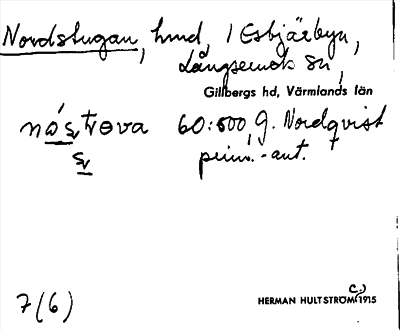 Nordstugan, hmd, i Esbjärbyn,
Långserud sn,
Gillbergs hd, Värmlands län
60:500, G. Nordqvist
prim.-ant.
7(6)
HERMAN HULTSTRÖM (c.) 1915